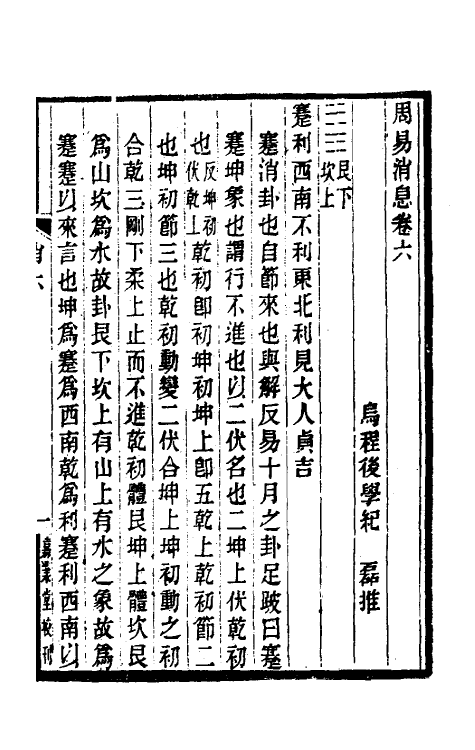 周易消息卷六
烏程後學紀 磊推
艮下
坎上
蹇利西南不利東北利見大人貞吉
蹇消卦也自節來也與解反易十月之卦足跛曰蹇
蹇坤象也謂行不進也以二伏名也二坤上伏乾初
也反坤初伏乾上乾初卽初坤初坤上卽五乾上乾初節二
也坤初節三也乾初動變二伏合坤上坤初動之初
合乾三剛下柔上止而不進乾初體艮坤上體坎艮
爲山坎爲水故卦艮下坎上有山上有水之象故爲
蹇蹇以來言也坤爲蹇爲西南乾爲利蹇利西南以
肖六
一
嘉業堂校刊